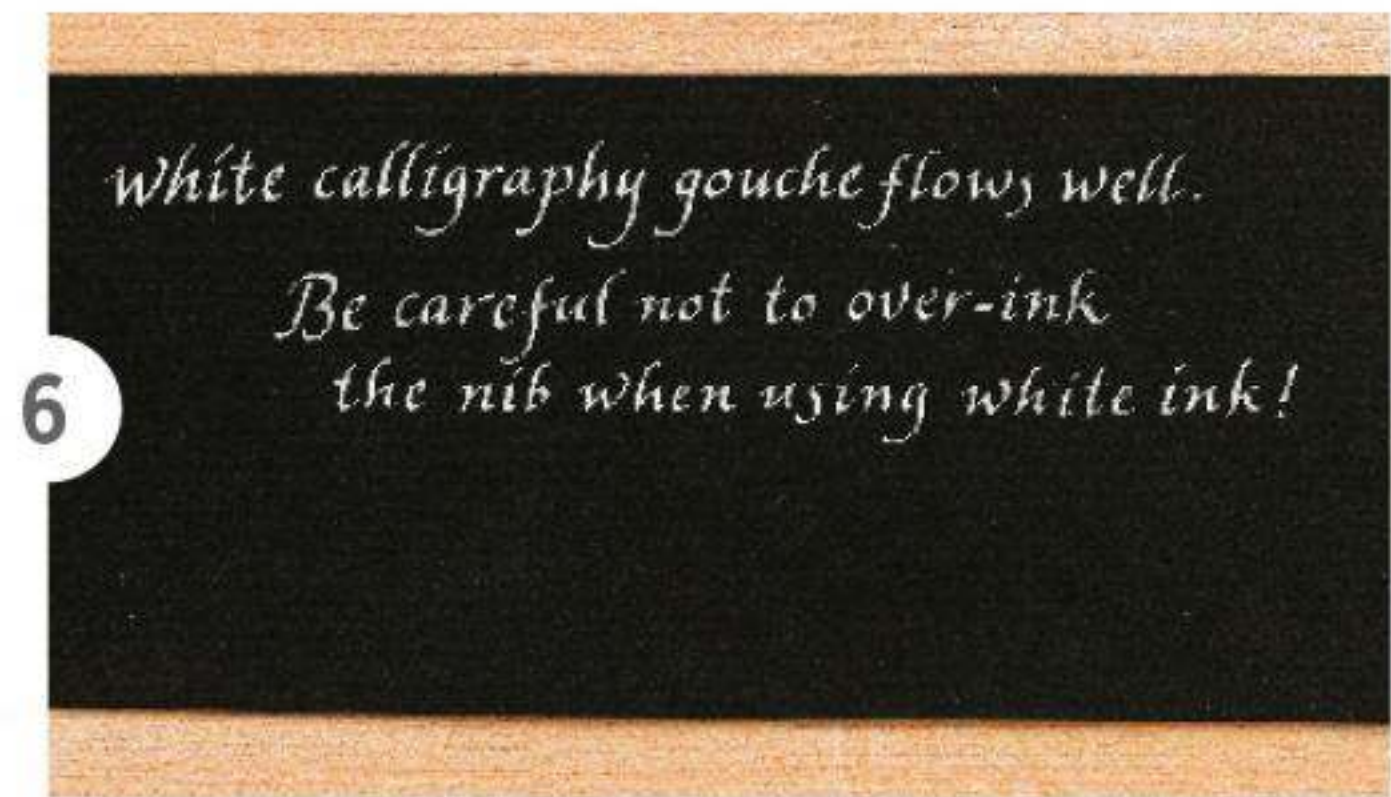 White calligraphy gouche flows well.
Be careful not to over-ink
6
the nib when using white ink!